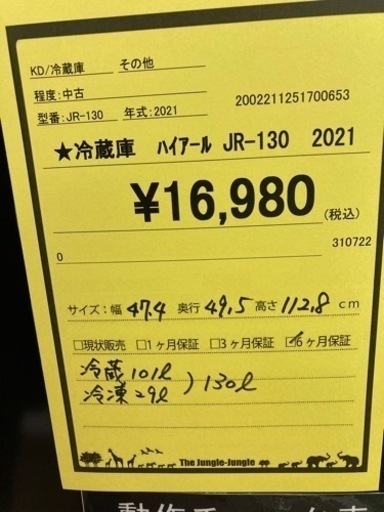 KD/冷蔵庫 その他
程度:中古
型番:JR-130 年式:2021 2002211251700653
★冷蔵庫 ﾊｲｱｰﾙ JR-130 2021
¥16,980(税込)
0 310722
サイズ:幅 47.4 奥行 49.5 高さ 112.8 cm
□現状販売 □1ヶ月保証 □3ヶ月保証 ☑6ヶ月保証
冷蔵 101ℓ
冷凍 29ℓ ) 130ℓ
The Jungle-Jungle